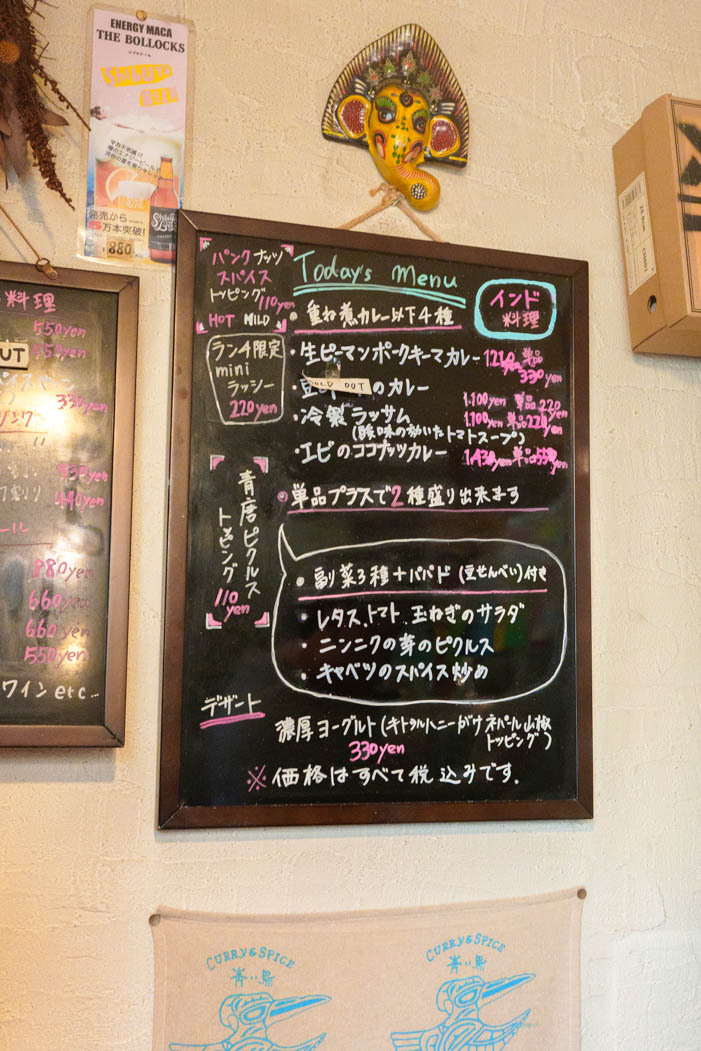 ENERGY MACA
THE BOLLOCKS
発売から
万本突破!
880
料理
550yen
550yen
330yen
330yen
440yen
880yen
660yen
660yen
550yen
ワイン etc...
パンクナッツ
スパイス
トッピング 110yen
HOT MILD
Today's menu
インド
料理
・重ね煮カレー以下4種
・生ピーマンポークキーマカレー 1,210yen 単品
330yen
SOLD OUT
のカレー 1,100yen 単品220yen
・冷製ラッサム 1,100yen 単品220yen
(酸味の効いたトマトスープ)
・エビのココナッツカレー 1,430yen 単品550yen
ランチ限定
mini
ラッシー
220yen
・単品プラスで2種盛り出来ます
青唐ピクルス
トッピング
110
yen
・副菜3種+パパド(豆せんべい)付き
・レタス、トマト、玉ねぎのサラダ
・ニンニクの芽のピクルス
・キャベツのスパイス炒め
デザート
濃厚ヨーグルト(キトゥルハニーがけ ネパール山椒
トッピング)
330yen
※価格はすべて税込みです.
CURRY&SPICE
青い鳥
CURRY&SPICE
青い鳥